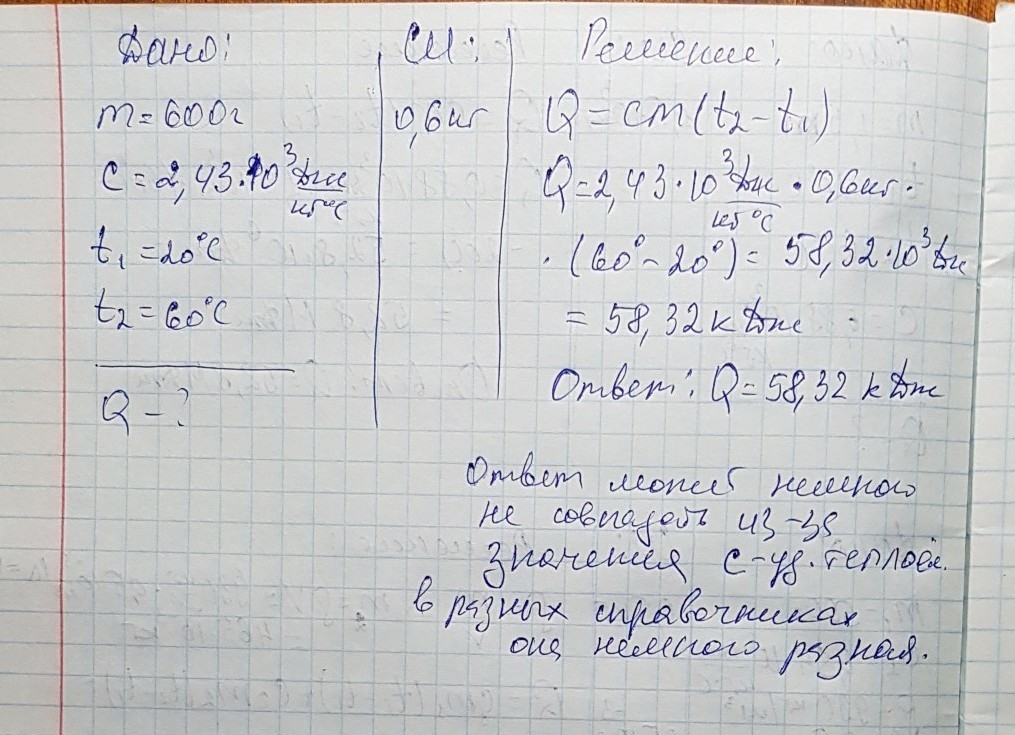 Дано:
m = 600г
c = 2,43·10³ Дж/кг°С
t₁ = 20°С
t₂ = 60°С
Q - ?
СИ:
0,6кг
Решение:
Q = cm(t₂ - t₁)
Q = 2,43·10³ Дж/кг°С · 0,6кг ·
· (60° - 20°) = 58,32·10³ Дж
= 58,32 кДж
Ответ: Q = 58,32 кДж
Ответ может немного
не совпадать из-за
значения с-уд. теплоём.
в разных справочниках
она немного разная.